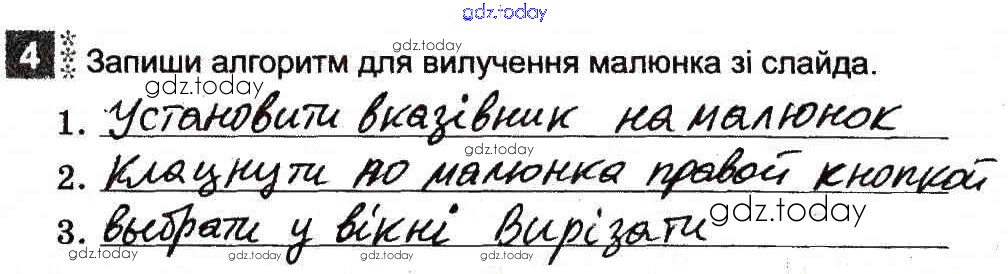 gdz.today
4 Запиши алгоритм для вилучення малюнка зі слайда.
gdz.today
gdz.today
1. Установити вказівник на малюнок
gdz.today
2. Клацнути по малюнка правой кнопкой
gdz.today
3. выбрати у вікні Вирізати
gdz.today
gdz.today
gdz.today